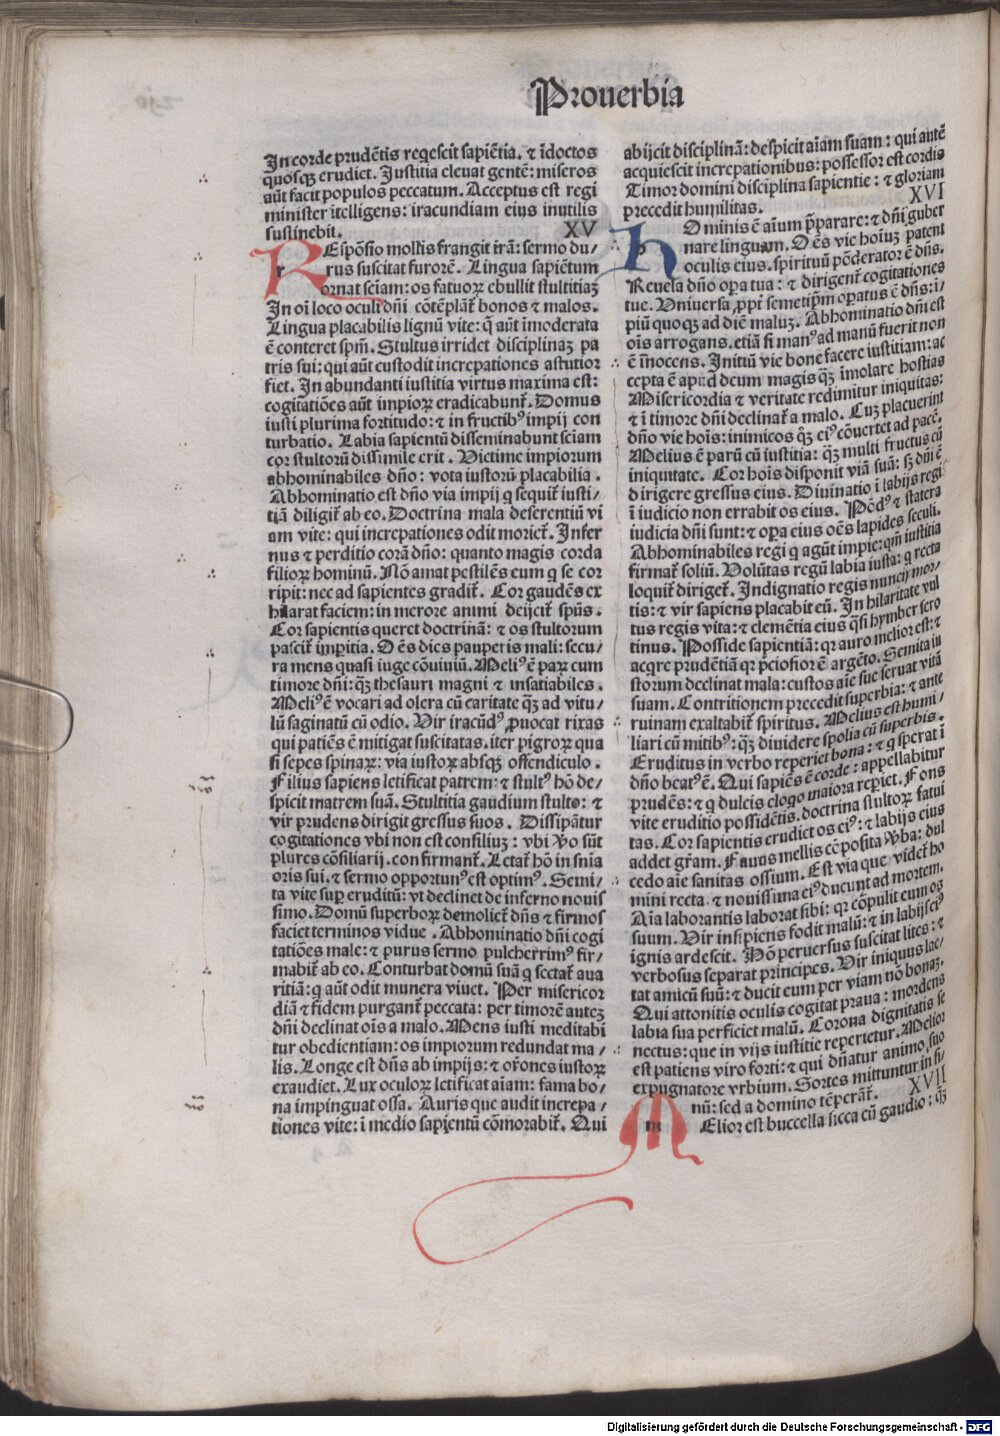 Prouerbia
In corde prudētis reqescit sapiētia. ⁊ īdoctos
quosqꝫ erudiet. Justitia eleuat gentē: miseros
aūt facit populos peccatum. Acceptus est regi
minister ītelligens: iracundiam eius inutilis
sustinebit. XV
REspōsio mollis frangit irā: sermo du/
rus suscitat furorē. Lingua sapiētum
ornat sciam: os fatuoꝝ ebullit stultitiaꝫ
In oī loco oculi dn̄i cōtēplāt̄ bonos ⁊ malos.
Lingua placabilis lignū vite: q̄ aūt īmoderata
ē conteret spm̄. Stultus irridet disciplinaꝫ pa
tris sui: qui aūt custodit increpationes astutior
fiet. In abundanti iustitia virtus maxima est:
cogitatiōes aūt impioꝝ eradicabunt̄. Domus
iusti plurima fortitudo: ⁊ in fructibꝰ impij con
turbatio. Labia sapientū disseminabunt sciam
cor stultorū dissimile erit. Victime impiorum
abhominabiles dn̄o: vota iustorū placabilia.
Abhominatio est dn̄o via impij q sequit̄ iusti/
tiā diligit̄ ab eo. Doctrina mala deserentiū vi
am vite: qui increpationes odit moriet̄. Infer
nus ⁊ perditio corā dn̄o: quanto magis corda
filioꝝ hominū. Nō amat pestilēs eum q se cor
ripit: nec ad sapientes gradit̄. Cor gaudēs ex
hilarat faciem: in merore animi deijcit̄ spūs.
Cor sapientis queret doctrinā: ⁊ os stultorum
pascit̄ īmpitia. Oēs dies pauperis mali: secu/
ra mens quasi iuge cōuiuiū. Meliꝰ ē paꝝ cum
timore dn̄i: qꝫ̄ thesauri magni ⁊ insatiabiles.
Meliꝰ ē vocari ad olera cū caritate qꝫ̄ ad vitu/
lū saginatū cū odio. Vir iracūdꝰ ꝓuocat rixas
qui patiēs ē mitigat suscitatas. iter pigroꝝ qua
si sepes spinaꝝ: via iustoꝝ absqꝫ offendiculo.
Filius sapiens letificat patrem: ⁊ stultꝰ hō de/
spicit matrem suā. Stultitia gaudium stulto: ⁊
vir prudens dirigit gressus suos. Dissipātur
cogitationes vbi non est consiliuꝫ: vbi v̊o sūt
plures cōsiliarij. confirmant̄. Letat̄ hō in snīa
oris sui. ⁊ sermo opportunꝰ est optimꝰ. Semi/
ta vite suꝑ eruditū: vt declinet de inferno nouis
simo. Domū superboꝝ demoliet̄ dn̄s ⁊ firmos
faciet terminos vidue. Abhominatio dn̄i cogi
tatiōes male: ⁊ purus sermo pulcherrimꝰ fir/
mabit̄ ab eo. Conturbat domū suā q sectat̄ aua
ritiā: q aūt odit munera viuet. Per misericor
diā ⁊ fidem purgant̄ peccata: per timorē auteꝫ
dn̄i declinat oīs a malo. Mens iusti meditabi
tur obedientiam: os impiorum redundat ma/
lis. Longe est dn̄s ab impijs: ⁊ orōnes iustoꝝ
exaudiet. Lux oculoꝝ letificat aīam: fama bo/
na impinguat ossa. Auris que audit increpa/
tiones vite: ī medio sapientū cōmorabit̄. Qui
abijcit disciplinā: despicit aīam suam: qui autē
acquiescit increpationibus: possessor est cordis
Timor domini disciplina sapientie: ⁊ gloriam
precedit humilitas. XVI
HOminis ē aīum p̄parare: ⁊ dn̄i guber
nare linguam. Oēs vie hoīuꝫ patent
oculis eius. spirituū pōderator ē dn̄s.
Reuela dn̄o oꝑa tua: ⁊ dirigent̄ cogitationes
tue. Vniuersa ꝓpt̄ semetip̄m oꝑatus ē dn̄s: i/
piū quoqꝫ ad diē maluꝫ. Abhominatio dn̄i est
oīs arrogans. etiā si manꝰ ad manū fuerit non
ē īnocens. Initiū vie bone facere iustitiam: ac
cepta ē apud deum magis qꝫ̄ īmolare hostias
Misericordia ⁊ veritate redimitur iniquitas:
⁊ ī timore dn̄i declinat̄ a malo. Cuꝫ placuerint
dn̄o vie hoīs: inimicos qꝫ̄ eiꝰ cōuertet ad pacē.
Melius ē parū cū iustitia: qꝫ̄ multi fructus cū
iniquitate. Cor hoīs disponit viā suā: sꝫ dn̄i ē
dirigere gressus eius. Diuinatio ī labijs regꝭ
ī iudicio non errabit os eius. Pōdꝰ ⁊ statera
iudicia dn̄i sunt: ⁊ oꝑa eius oēs lapides seculi.
Abhominabiles regi q agūt impie: qm̄ iustitia
firmat̄ soliū. Volūtas regū labia iusta: q recta
loquit̄ diriget̄. Indignatio regis nuncij mor/
tis: ⁊ vir sapiens placabit eū. In hilaritate vul
tus regis vita: ⁊ clemētia eius q̄si hymber sero
tinus. Posside sapientiā: qꝛ auro melior est: ⁊
acqre prudētiā qꝛ p̄ciosior ē argēto. Semita iu
storum declinat mala: custos aīe sue seruat vitā
suam. Contritionem precedit superbia: ⁊ ante
ruinam exaltabit̄ spiritus. Melius est humi/
liari cū mitibꝰ: qꝫ̄ diuidere spolia cū superbis.
Eruditus in verbo reperiet bona: ⁊ q sperat ī
dn̄o beatꝰ ē. Qui sapiēs ē corde: appellabitur
prudēs: ⁊ q dulcis eloqo maiora reꝑiet. Fons
vite eruditio possidētis. doctrina stultoꝝ fatui
tas. Cor sapientis erudiet os eiꝰ: ⁊ labijs eius
addet gr̄am. Fauus mellis cōposita v̓ba: dul
cedo aīe sanitas ossium. Est via que videt̄ ho
mini recta. ⁊ nouissima eiꝰ ducunt ad mortem.
Aīa laborantis laborat sibi: qꝛ cōpulit eum os
suum. Vir insipiens fodit malū: ⁊ in labijs eiꝰ
ignis ardescit. Hō peruersus suscitat lites: ⁊
verbosus separat principes. Vir iniquus lac/
tat amicū suū: ⁊ ducit eum per viam nō bonaꝫ.
Qui attonitis oculis cogitat praua: mordens
labia sua perficiet malū. Corona dignitatis se
nectus: que in vijs iustitie reperietur. Melior
est patiens viro forti: ⁊ qui dn̄atur animo suo
expugnatore vrbium. Sortes mittuntur in si/
nū: sed a domino tēperāt̄. XVII
MElior est buccella sicca cū gaudio: qꝫ̄
Digitalisierung gefördert durch die Deutsche Forschungsgemeinschaft - DFG